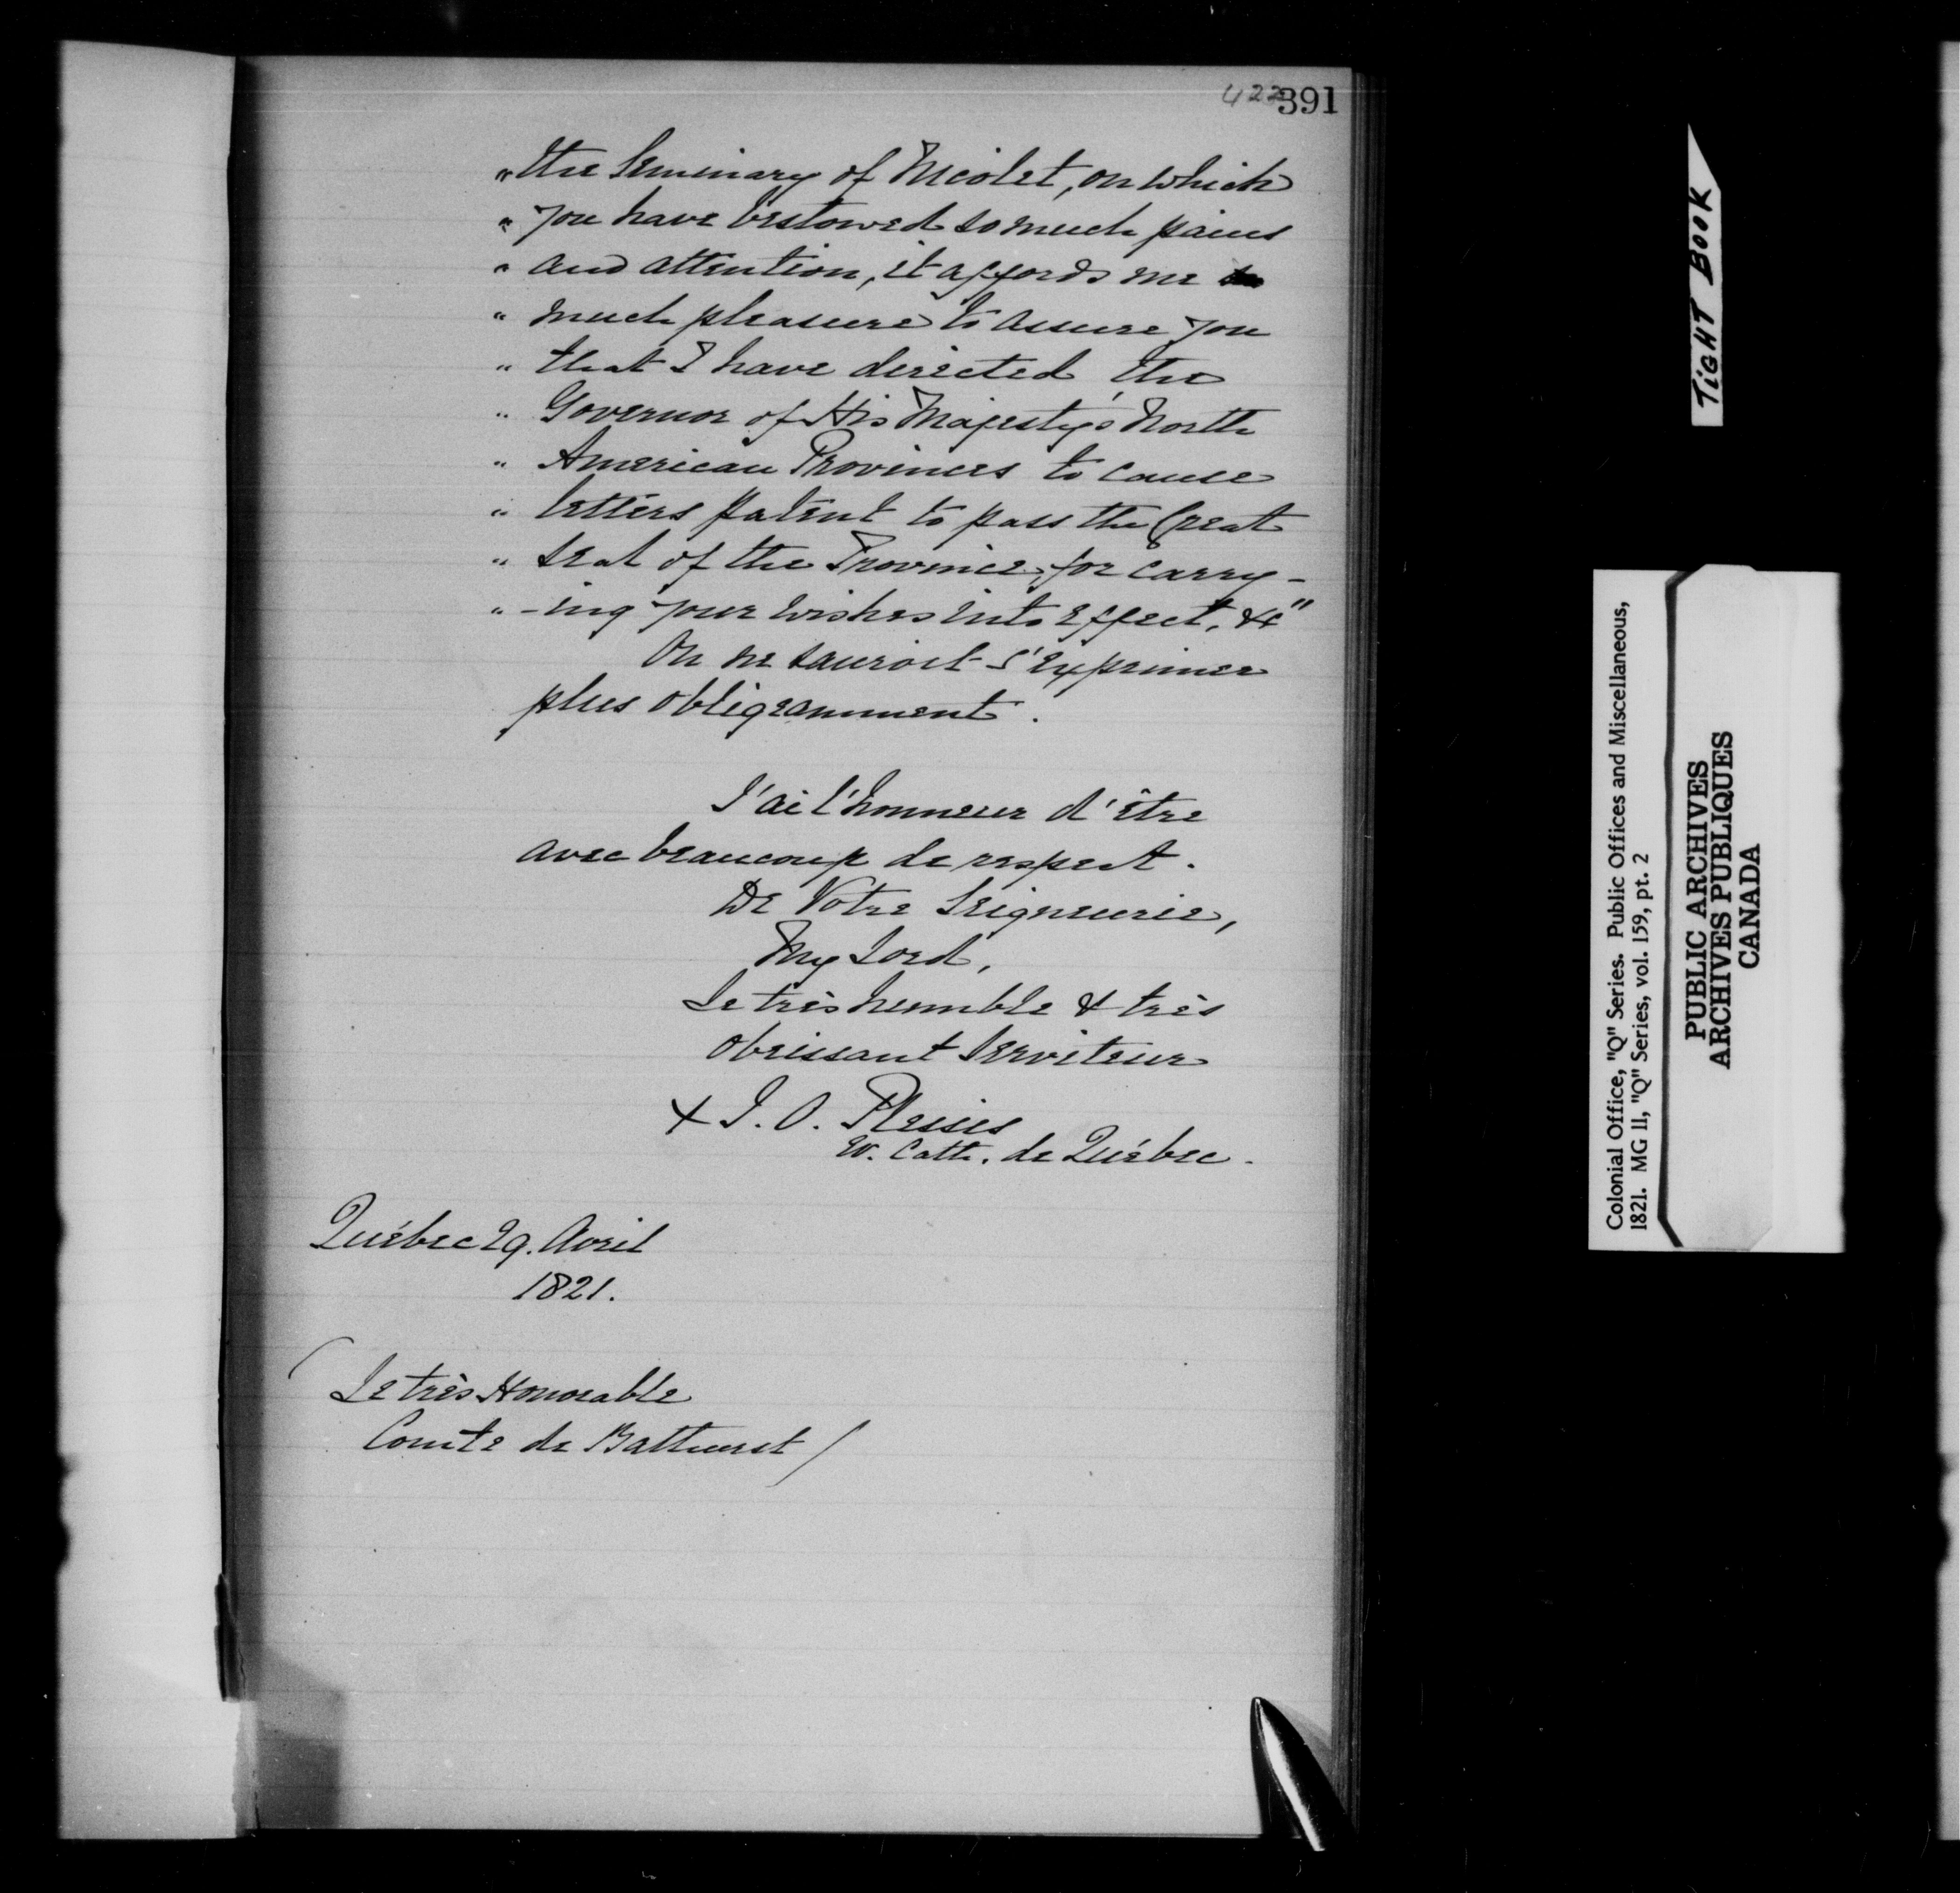 422 391
" the Seminary of Nicolet, on which
" you have bestowed so much pains
" and attention, it affords me
" much pleasure to assure you
" that I have directed the
" Governor of His Majesty's North
" American Provinces to cause
" letters patent to pass the Great
" seal of the Province, for carry-
" -ing your wishes into effect, &c"
On ne sauroit s'exprimer
plus obligeamment.
J'ai l'honneur d'être
avec beaucoup de respect.
De Votre Seigneurie,
My Lord,
Le très humble & très
obeissant Serviteur
+ J. O. Plessis
Ev. Cath. de Québec.
Québec 29. Avril
1821.
(Le très Honorable
Comte de Bathurst)
TIGHT BOOK
Colonial Office, "Q" Series. Public Offices and Miscellaneous,
1821. MG 11, "Q" Series, vol. 159, pt. 2
PUBLIC ARCHIVES
ARCHIVES PUBLIQUES
CANADA